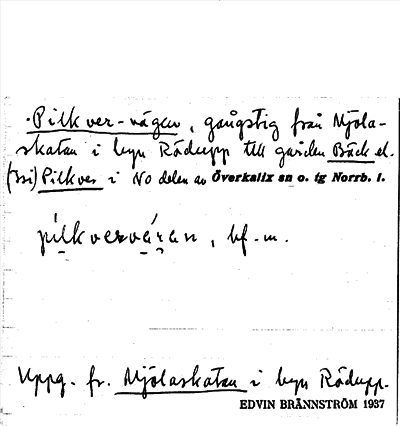 ·Pilkver-vägen, gångstig från Mjöla-
skatan i byn Rödupp till gården Bäck el.
Pilkver i NO delen av Överkalix sn o. tg Norrb. l.
pilkverváran, bf. m.
Uppg. fr. Mjölaskatan i byn Rödupp.
EDVIN BRÄNNSTRÖM 1937